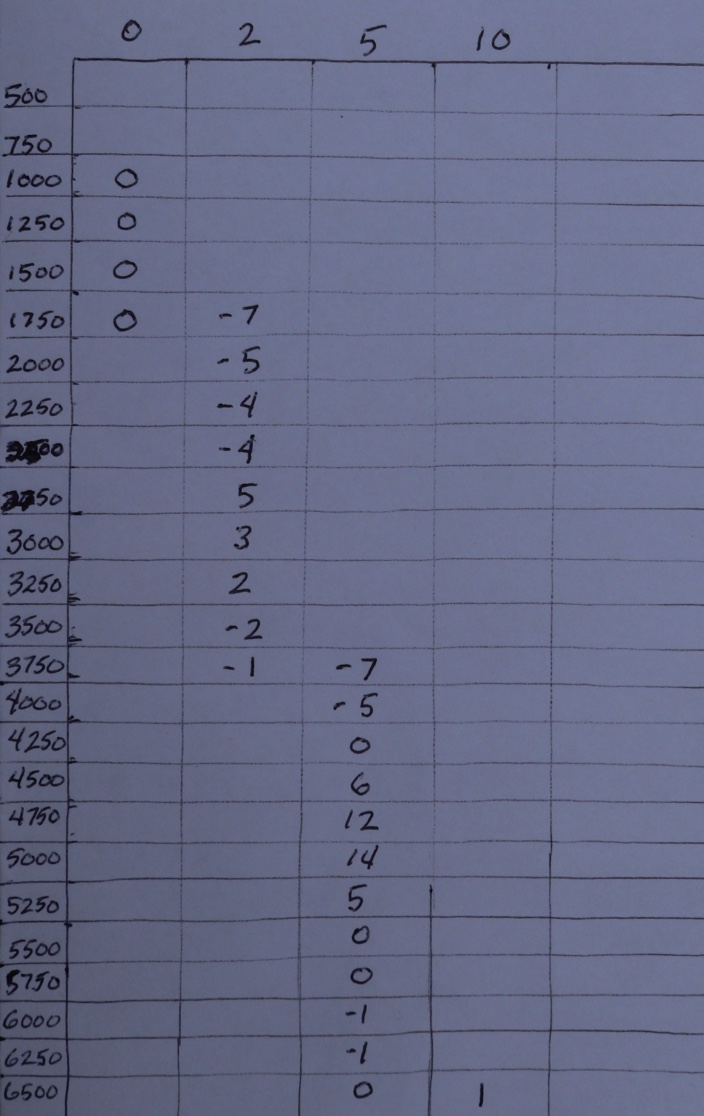 0 2 5 10
500
750
1000 0
1250 0
1500 0
1750 0 -7
2000 -5
2250 -4
-4
5
3000 3
3250 2
3500 -2
3750 -1 -7
4000 -5
4250 0
4500 6
4750 12
5000 14
5250 5
5500 0
5750 0
6000 -1
6250 -1
6500 0 1